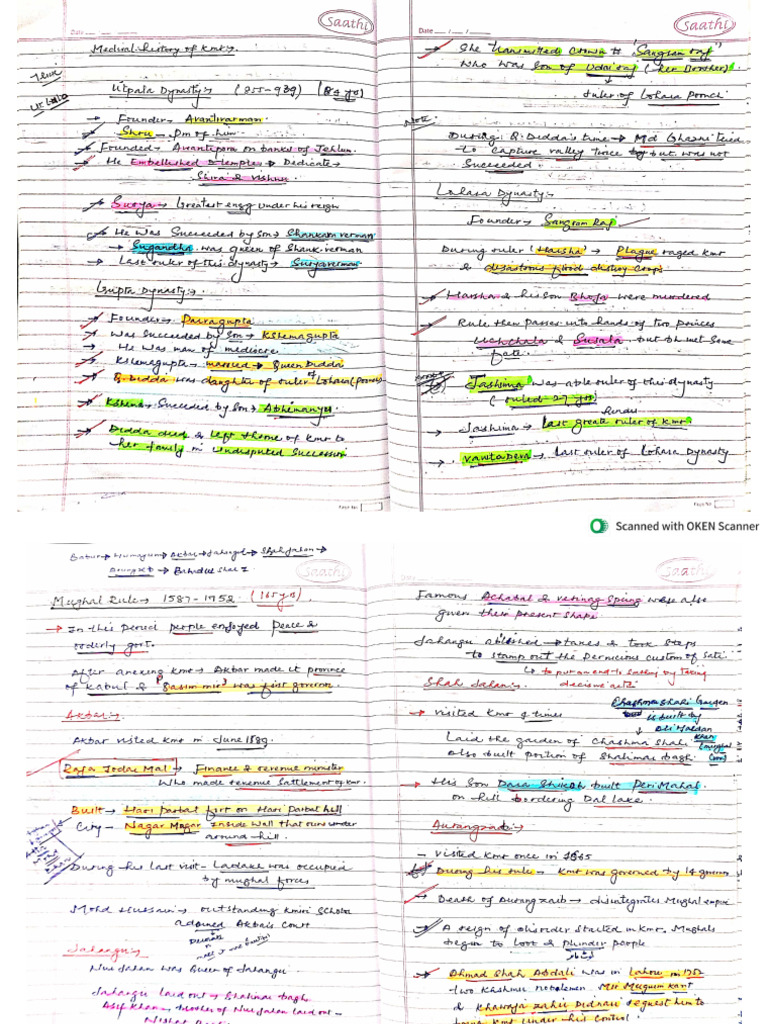 Saathi
Date
Medical history of Kmr
Utpala Dynasty (855-939) (84 yrs)
Founder → Avantivarman
Shru → Pm of him
Founded → Awantipora on banks of Jehlum
He Embellished 2 temples → Dedicate →
Siva & vishnu
Surya → Greatest engg under his reign
He Was Succeeded by Son → Shankarverman
Sugandha was queen of Shankverman
Last ruler of this dynasty → Suryaverman
Gupta Dynasty
Founder → Parvagupta
Was Succeeded by Son → Kshemagupta
He was man of mediocre
Kshemegupta → married → Queen Didda
Q Didda was daughter of ruler of Lohara (poonch)
Kshema → Succeded by Son → Abhemanyu
Didda died & left throne of Kmr to
her family in undisputed Successor
Page No.
Saathi
Date
She transmitted crown to "Sangram raj"
Who was Son of Udairaj (her Brother)
ruler of Lohara Poonch
Note
During Q Didda's time → Md Ghazni tried
to capture valley twice but was not
Succeeded
Lohara Dynasty
Founder → Sangram Raj
During ruler (Harsha) → Plague raged Kmr
& disastrous flood destroy crops
Harsha & his son Bhoja were murdered
Rule then passes into hands of two princes
Uchchala & Susala but they met Same
fate.
Jashima was able ruler of this dynasty
(ruled 27 yrs)
Hindu
Jashima → last great ruler of Kmr
Vanta Deva → Last ruler of Lohara Dynasty
Page No.
Scanned with OKEN Scanner
Babur → Humayum → Akbar → Jahangir → Shah Jahan →
Aurangzeb → Bahadur Shah I
Saathi
Mughal Rule → 1587-1752 (165 yrs)
In this period people enjoyed Peace &
orderly govt.
After anexing Kmr → Akbar made it province
of Kabul & "Qasim mir" was first governor
Akbar
Akbar visted Kmr in June 1589
Raja Todar Mal → Finance & revenue minister
Who made revenue Settlement of Kmr.
Built → Hari Parbat fort on Hari Parbat hill
City → Nagar Nagar inside wall that runs under
around hill.
During his last visit → Ladakh was occupied
by mughal forces
Mohd Hussain → outstanding Kmiri Scholar
adorned Akbar's Court
Decorate
make it more beautiful
Jahangir
Nur Jahan was Queen of Jahangir
Jahangir laid out → Shalimar bagh
Asif Khan → brother of Nur Jahan laid out →
Saathi
Date
Famous Achabal & verinag Spring were also
given their present shape
Jahangir abolished → taxes & took steps
to stamp out the pernicious custom of Sati
to put an end to sathing by taking
decisive acts
Shah Jahan
visited Kmr 4 times
Chashma Shahi Garden
built by
Ali Mardan
Khan
(mughal
Gov)
Laid the garden of Chashma Shahi
Also built portion of Shalimar bagh
His Son Dara Shikoh built Peri Mahal
on hill bordering Dal lake.
Aurangzaib
visited Kmr once in 1665
During his rule → Kmr was governed by 14 governors
Death of Aurangzaib → disintegrates Mughal empire
A reign of disorder started in Kmr. Mughals
begun to loot & plunder people
Ahmad Shah Abdali was in lahore in 1752
two Kashmir noblemen Mir Muqum Kant
& Khawaja Zahir Didmari request him to